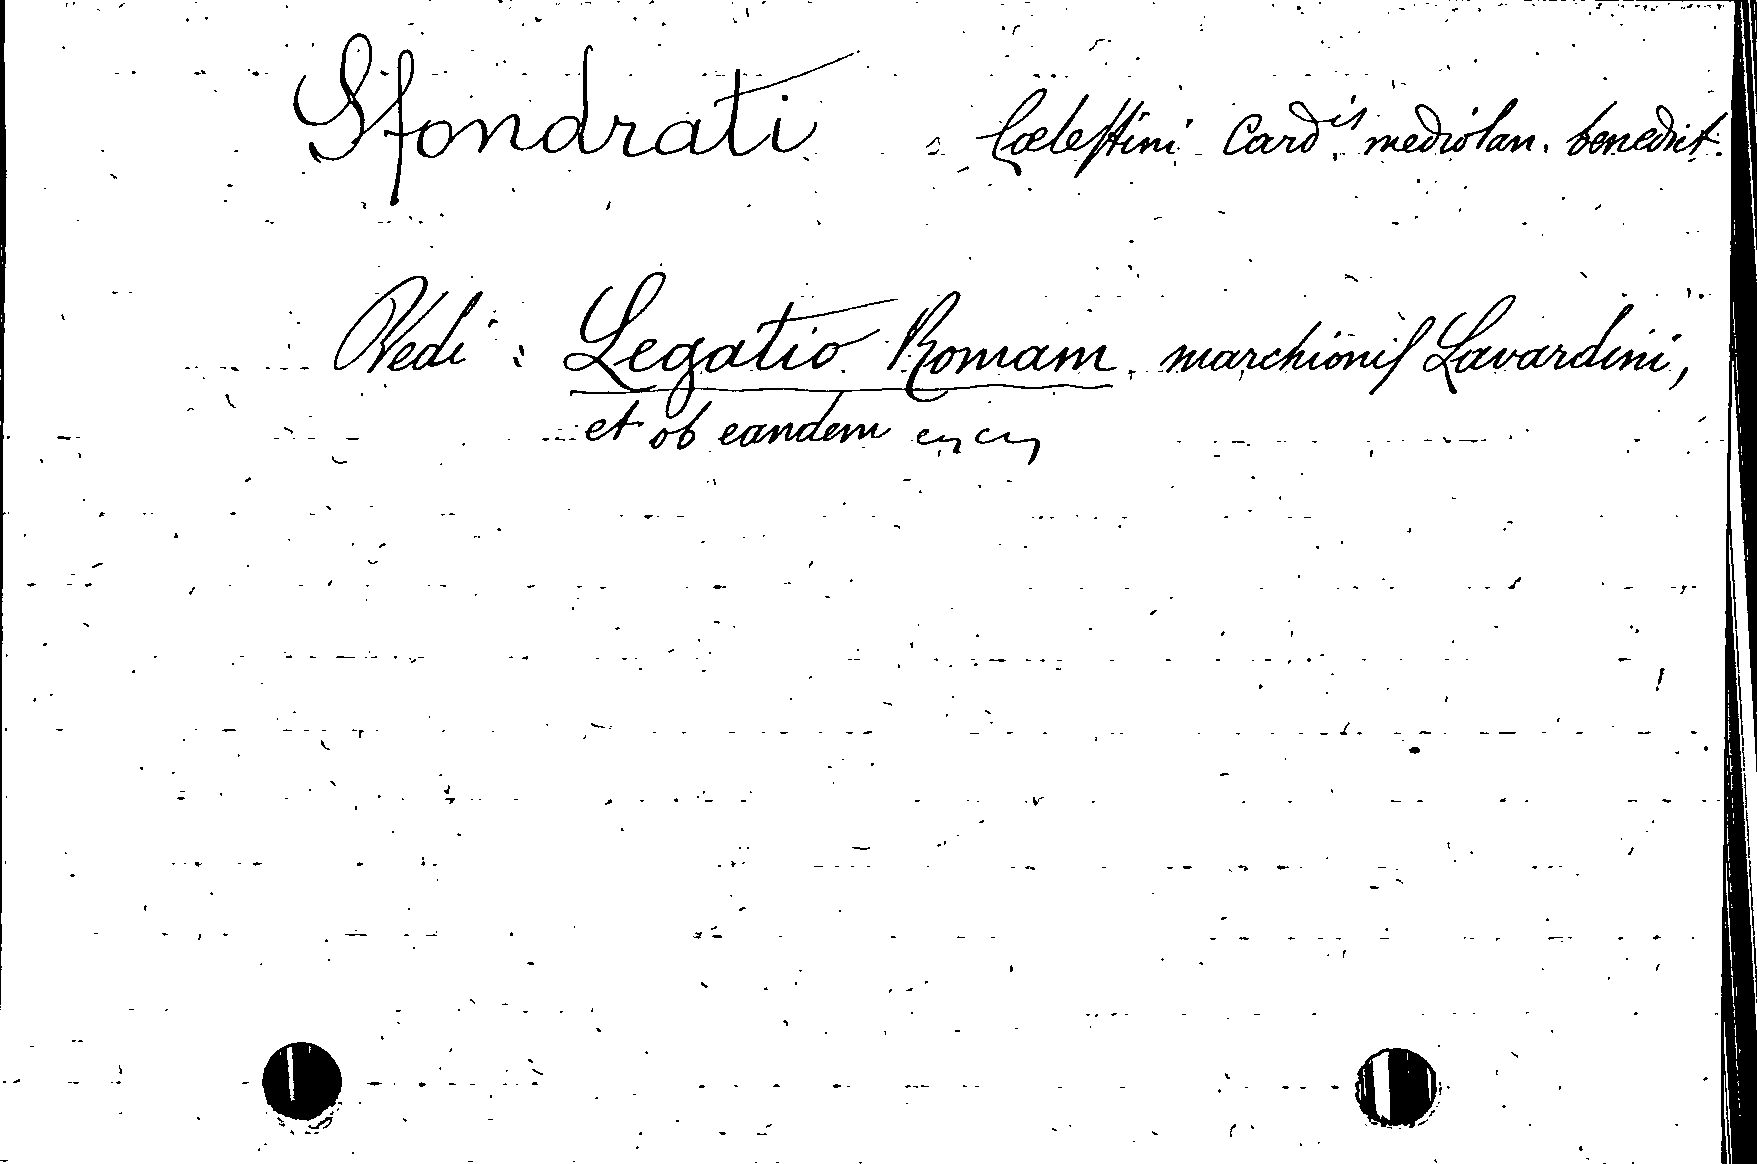 Sfondrati : Cœlestini Card.is mediolan. benedict.
Vedi : Legatio Romam marchionis Lavardini,
et ob eandem